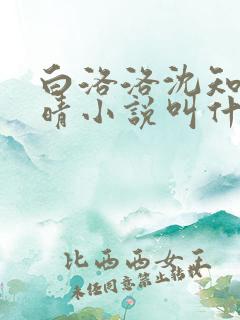 白洛洛沈知
晴小说叫什
比西西女王
未经同意禁止转载